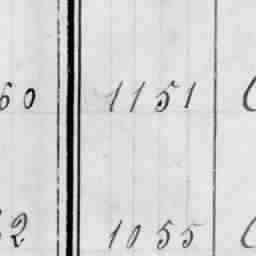 60 1151
2 1055